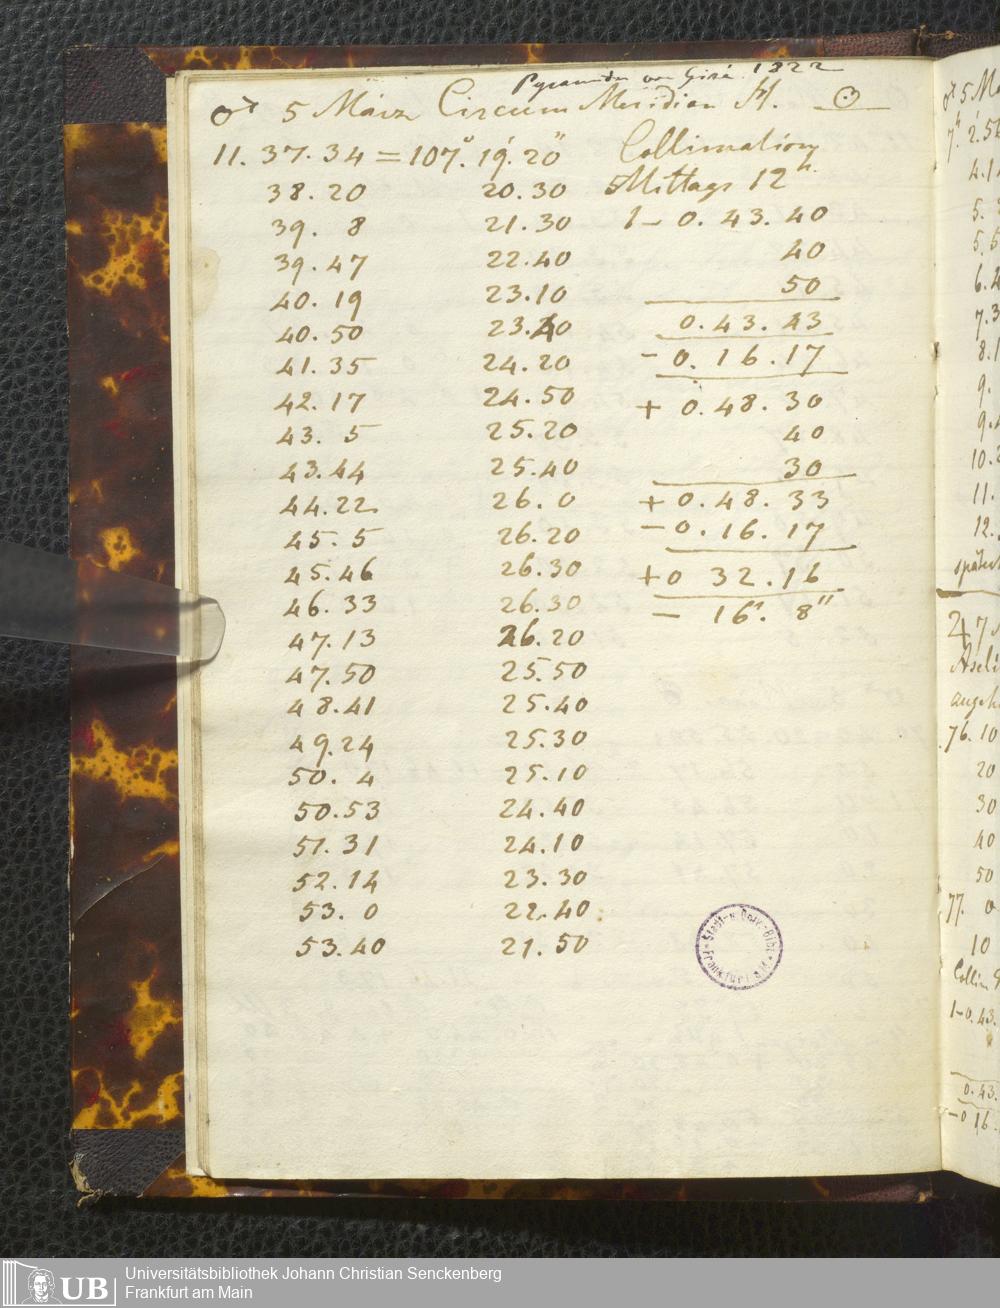 Pyramiden von Gisé. 1822
♂ 5 März Circum Meridian H. ☉
11. 37. 34 = 107°. 19'. 20"
38. 20 20. 30
39. 8 21. 30
39. 47 22. 40
40. 19 23. 10
40. 50 23. 40
41. 35 24. 20
42. 17 24. 50
43. 5 25. 20
43. 44 25. 40
44. 22 26. 0
45. 5 26. 20
45. 46 26. 30
46. 33 26. 30
47. 13 26. 20
47. 50 25. 50
48. 41 25. 40
49. 24 25. 30
50. 4 25. 10
50. 53 24. 40
51. 31 24. 10
52. 14 23. 30
53. 0 22. 40
53. 40 21. 50
Collimation
Mittags 12h.
1 – 0. 43. 40
40
50
0. 43. 43
– 0. 16. 17
+ 0. 48. 30
40
30
+ 0. 48. 33
– 0. 16. 17
+ 0 32. 16
– 16'. 8"
Stadt- u. Univ.-Bibl.
Frankfurt
♂ 5 Mä
7h 2. 5
4. 1
5.
5. 5
6. 4
7. 3
8. 1
9.
9.
10. 2
11.
12.
später
♃ 7
angeh
76. 10
20
30
40
50
77. 0
10
Collim.
1–0. 43.
0. 43.
–0 16.
UB
Universitätsbibliothek Johann Christian Senckenberg
Frankfurt am Main